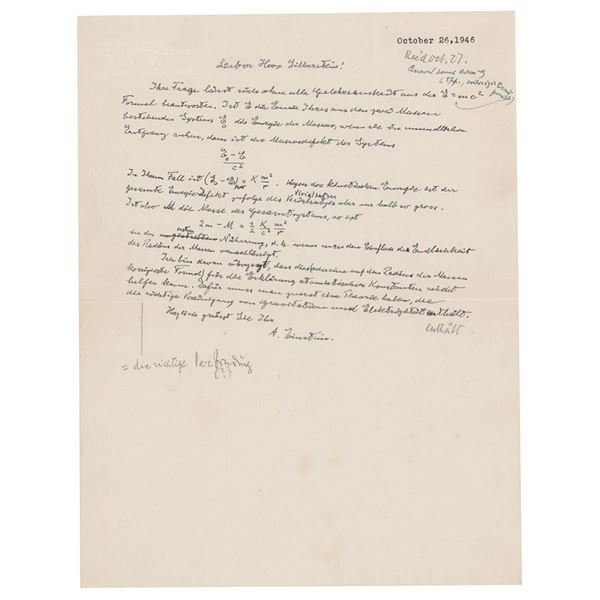 October 26, 1946
Rec'd Oct. 27.
Lieber Herr Silberstein!
Ihre Frage lässt sich ohne alle Gelehrsamkeit aus der E = mc²
Formel beantworten. Ist E die Energie Ihres aus den zwei Massen
bestehenden Systems E₀ die Energie der Massen, wenn sie in unendlicher
Entfernung ruhen, dann ist der Massendefekt des Systems
E₀ – E
c²
In Ihrem Fall ist (E₀ – E) = K m²/r. Wegen der kinetischen Energie ist der
gesamte Energiedefekt zufolge des Virialsatzes aber nur halb so gross.
Ist also M die Masse des Gesamtsystems, so ist
2m – M = 1/2 K/c² m²/r
in der ersten Näherung, d. h. wenn man den Einfluss der Endlichkeit
des Radius der Massen vernachlässigt.
Ich bin davon überzeugt, dass die auf den Radius der Massen
Formel für die Erklärung atomistischer Konstanten nicht
helfen kann. Dafür muss man zuerst eine Theorie haben, die
die richtige Vereinigung von Gravitation und Elektrizität enthält.
enthält
Herzlich grüsst Sie Ihr
A. Einstein.
= die richtige Verbindung
(?)